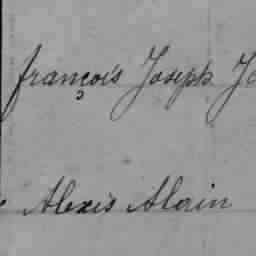 françois Joseph
Alexis Alain